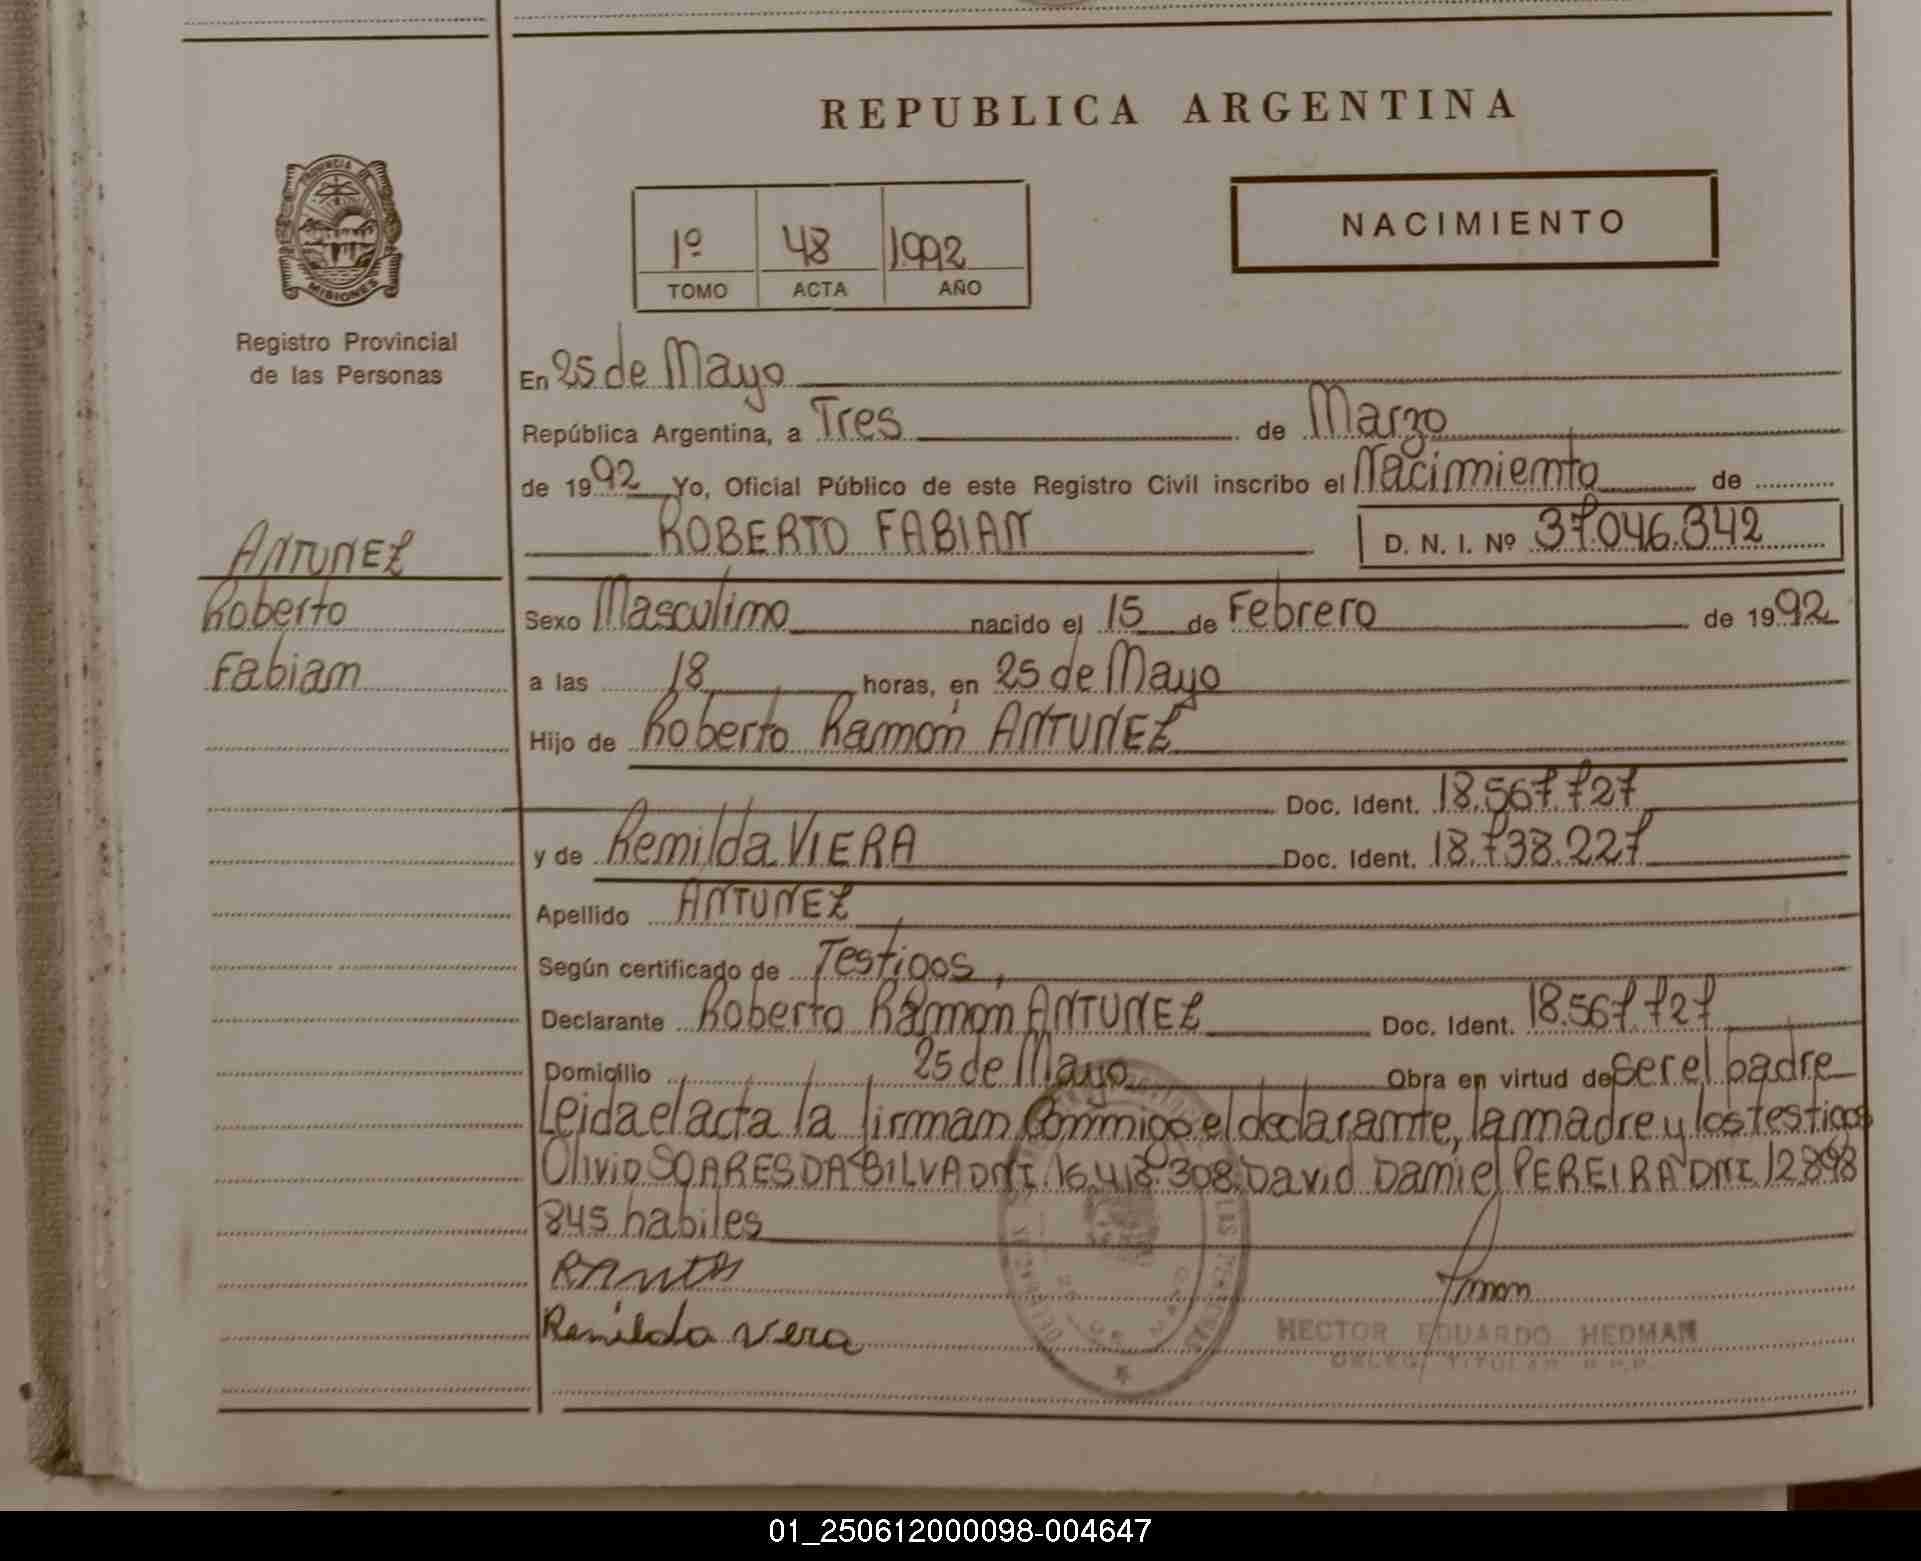 REPUBLICA ARGENTINA
PROVINCIA DE
MISIONES
Registro Provincial
de las Personas
1º 48 1992
TOMO ACTA AÑO
NACIMIENTO
En 25 de Mayo
República Argentina, a Tres de Marzo
de 1992 Yo, Oficial Público de este Registro Civil inscribo el Nacimiento de
ROBERTO FABIAN D. N. I. Nº 37.046.342
ANTUNEZ
Roberto
Fabian
Sexo Masculino nacido el 15 de Febrero de 1992
a las 18 horas, en 25 de Mayo
Hijo de Roberto Ramón ANTUNEZ
Doc. Ident. 18.567.727
y de Remilda VIERA Doc. Ident. 18.738.227
Apellido ANTUNEZ
Según certificado de Testigos,
Declarante Roberto Ramón ANTUNEZ Doc. Ident. 18.567.727
Domicilio 25 de Mayo Obra en virtud de ser el padre
Leida el acta la firman conmigo el declarante, la madre y los testigos
Olivio SOARES DA SILVA DNI. 16.418.308. David Daniel PEREIRA DNI 12.898
845 habiles
Remilda Vera
HECTOR EDUARDO HEDMAN
TITULAR R.P.P.
01_250612000098-004647